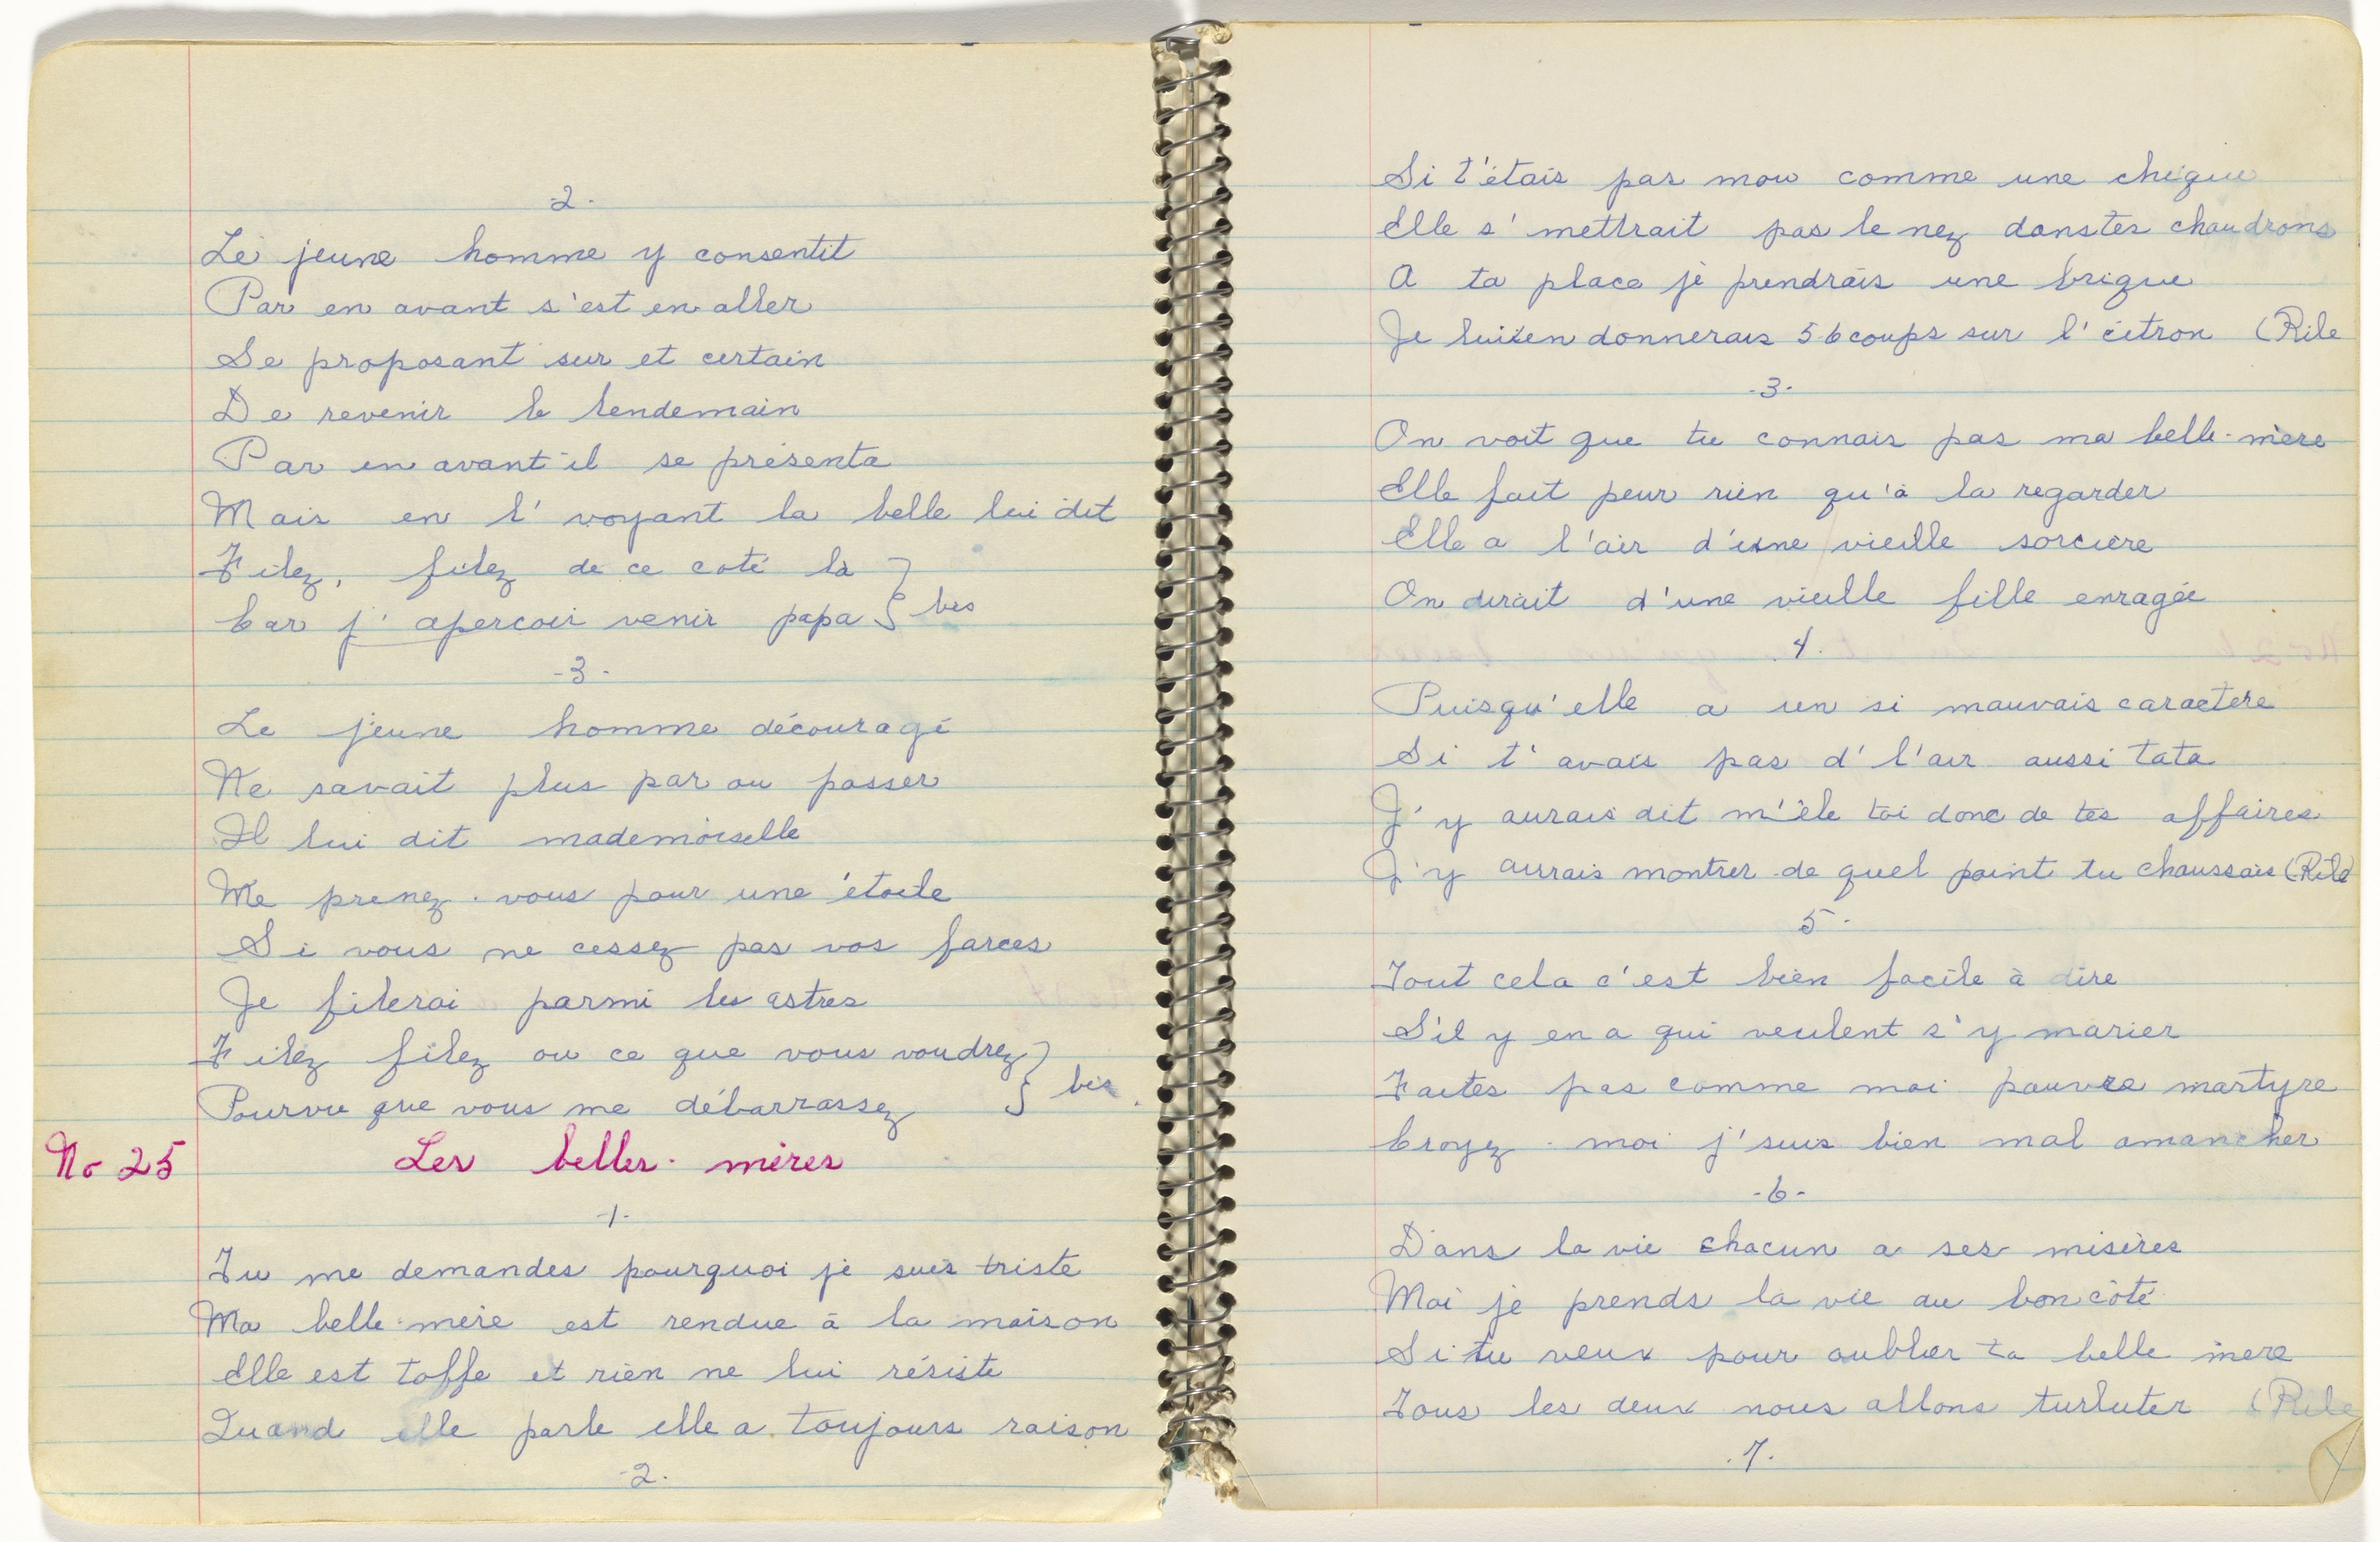 -2-
Le jeune homme y consentit
Par en avant s'est en aller
Se proposant sur et certain
De revenir le lendemain
Par en avant il se présenta
Mais en l'voyant la belle lui dit
Filez, filez de ce coté là
Car j'apercoir venir papa } bis
-3-
Le jeune homme découragé
Ne savait plus par ou passer
Il lui dit mademoiselle
Me prenez-vous pour une étoile
Si vous ne cessez pas vos farces
Je filerai parmi les astres
Filez filez ou ce que vous voudrez
Pourvu que vous me débarrassez } bis.
No 25 Les belles-mères
-1-
Tu me demandes pourquoi je suis triste
Ma belle-mère est rendue à la maison
Elle est toffe et rien ne lui résiste
Quand elle parle elle a toujours raison
-2-
Si t'étais pas mou comme une chique
Elle s'mettrait pas le nez dans tes chaudrons
A ta place je prendrais une brique
Je lui en donnerais 56 coups sur l'citron (Rile
-3-
On voit que tu connais pas ma belle-mère
Elle fait peur rien qu'à la regarder
Elle a l'air d'une vieille sorcière
On dirait d'une vieille fille enragée
4.
Puisqu'elle a un si mauvais caractère
Si t'avais pas d'l'air aussi tata
J'y aurais dit mêle toi donc de tes affaires
J'y aurais montrer de quel point tu chaussais (Rile)
5-
Tout cela c'est bien facile à dire
S'il y en a qui veulent s'y marier
Faites pas comme moi pauvre martyre
Croyez-moi j'suis bien mal amancher
-6-
Dans la vie chacun a ses misères
Moi je prends la vie au bon côté
Si tu veux pour oublier ta belle mère
Tous les deux nous allons turluter (Rile
.7.